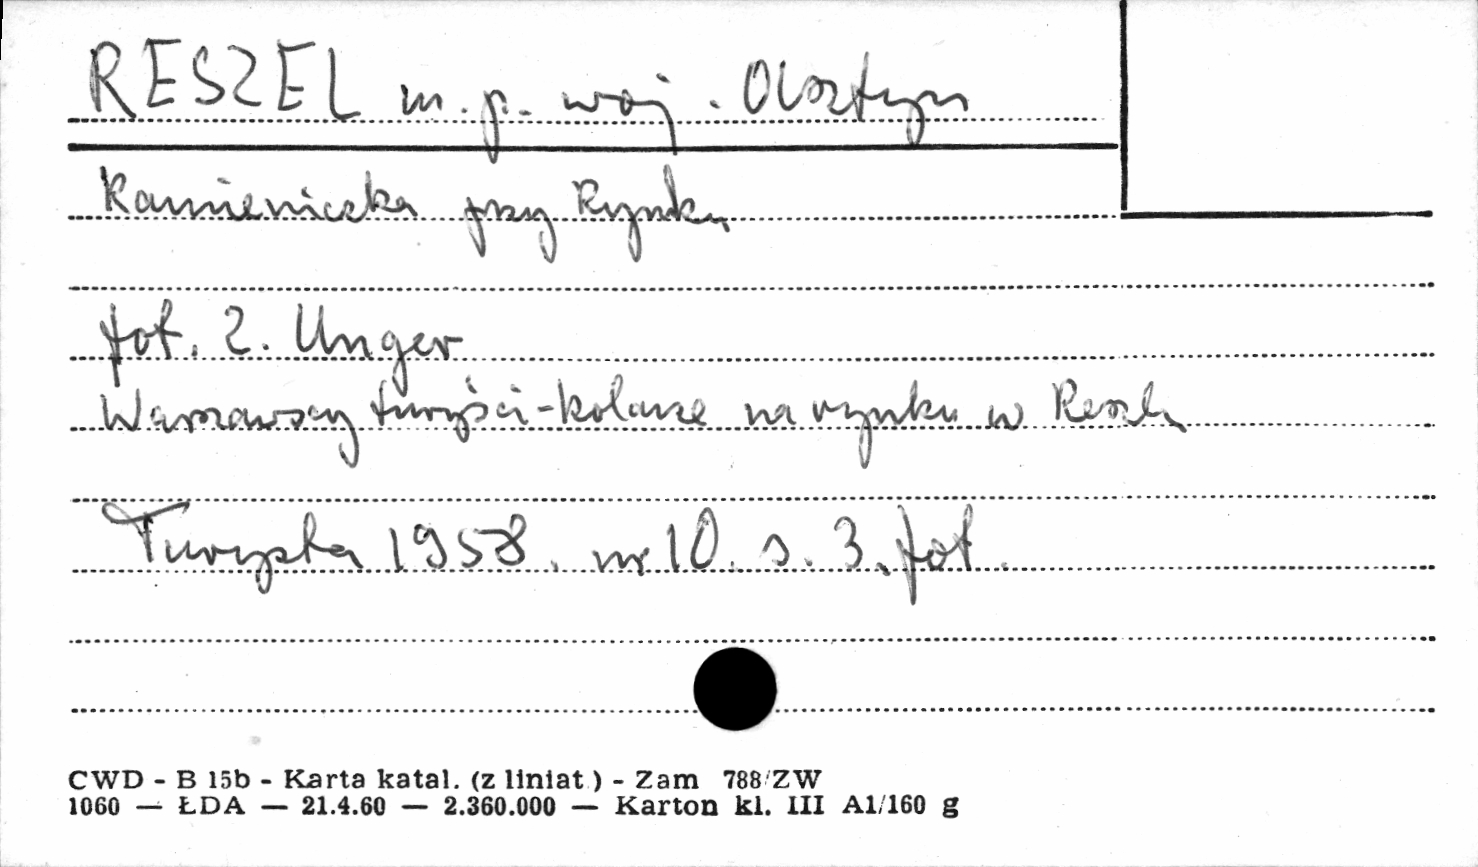 RESZEL m. p. woj. Olsztyn
Kamieniczka przy Rynku
fot. Z. Unger
Warszawscy turyści-kolarze na rynku w Reszlu
Turysta 1958. nr 10. s. 3. fot.
CWD - B 15b - Karta katal. (z liniat.) - Zam 788/ZW
1060 — ŁDA — 21.4.60 — 2.360.000 — Karton kl. III A1/160 g